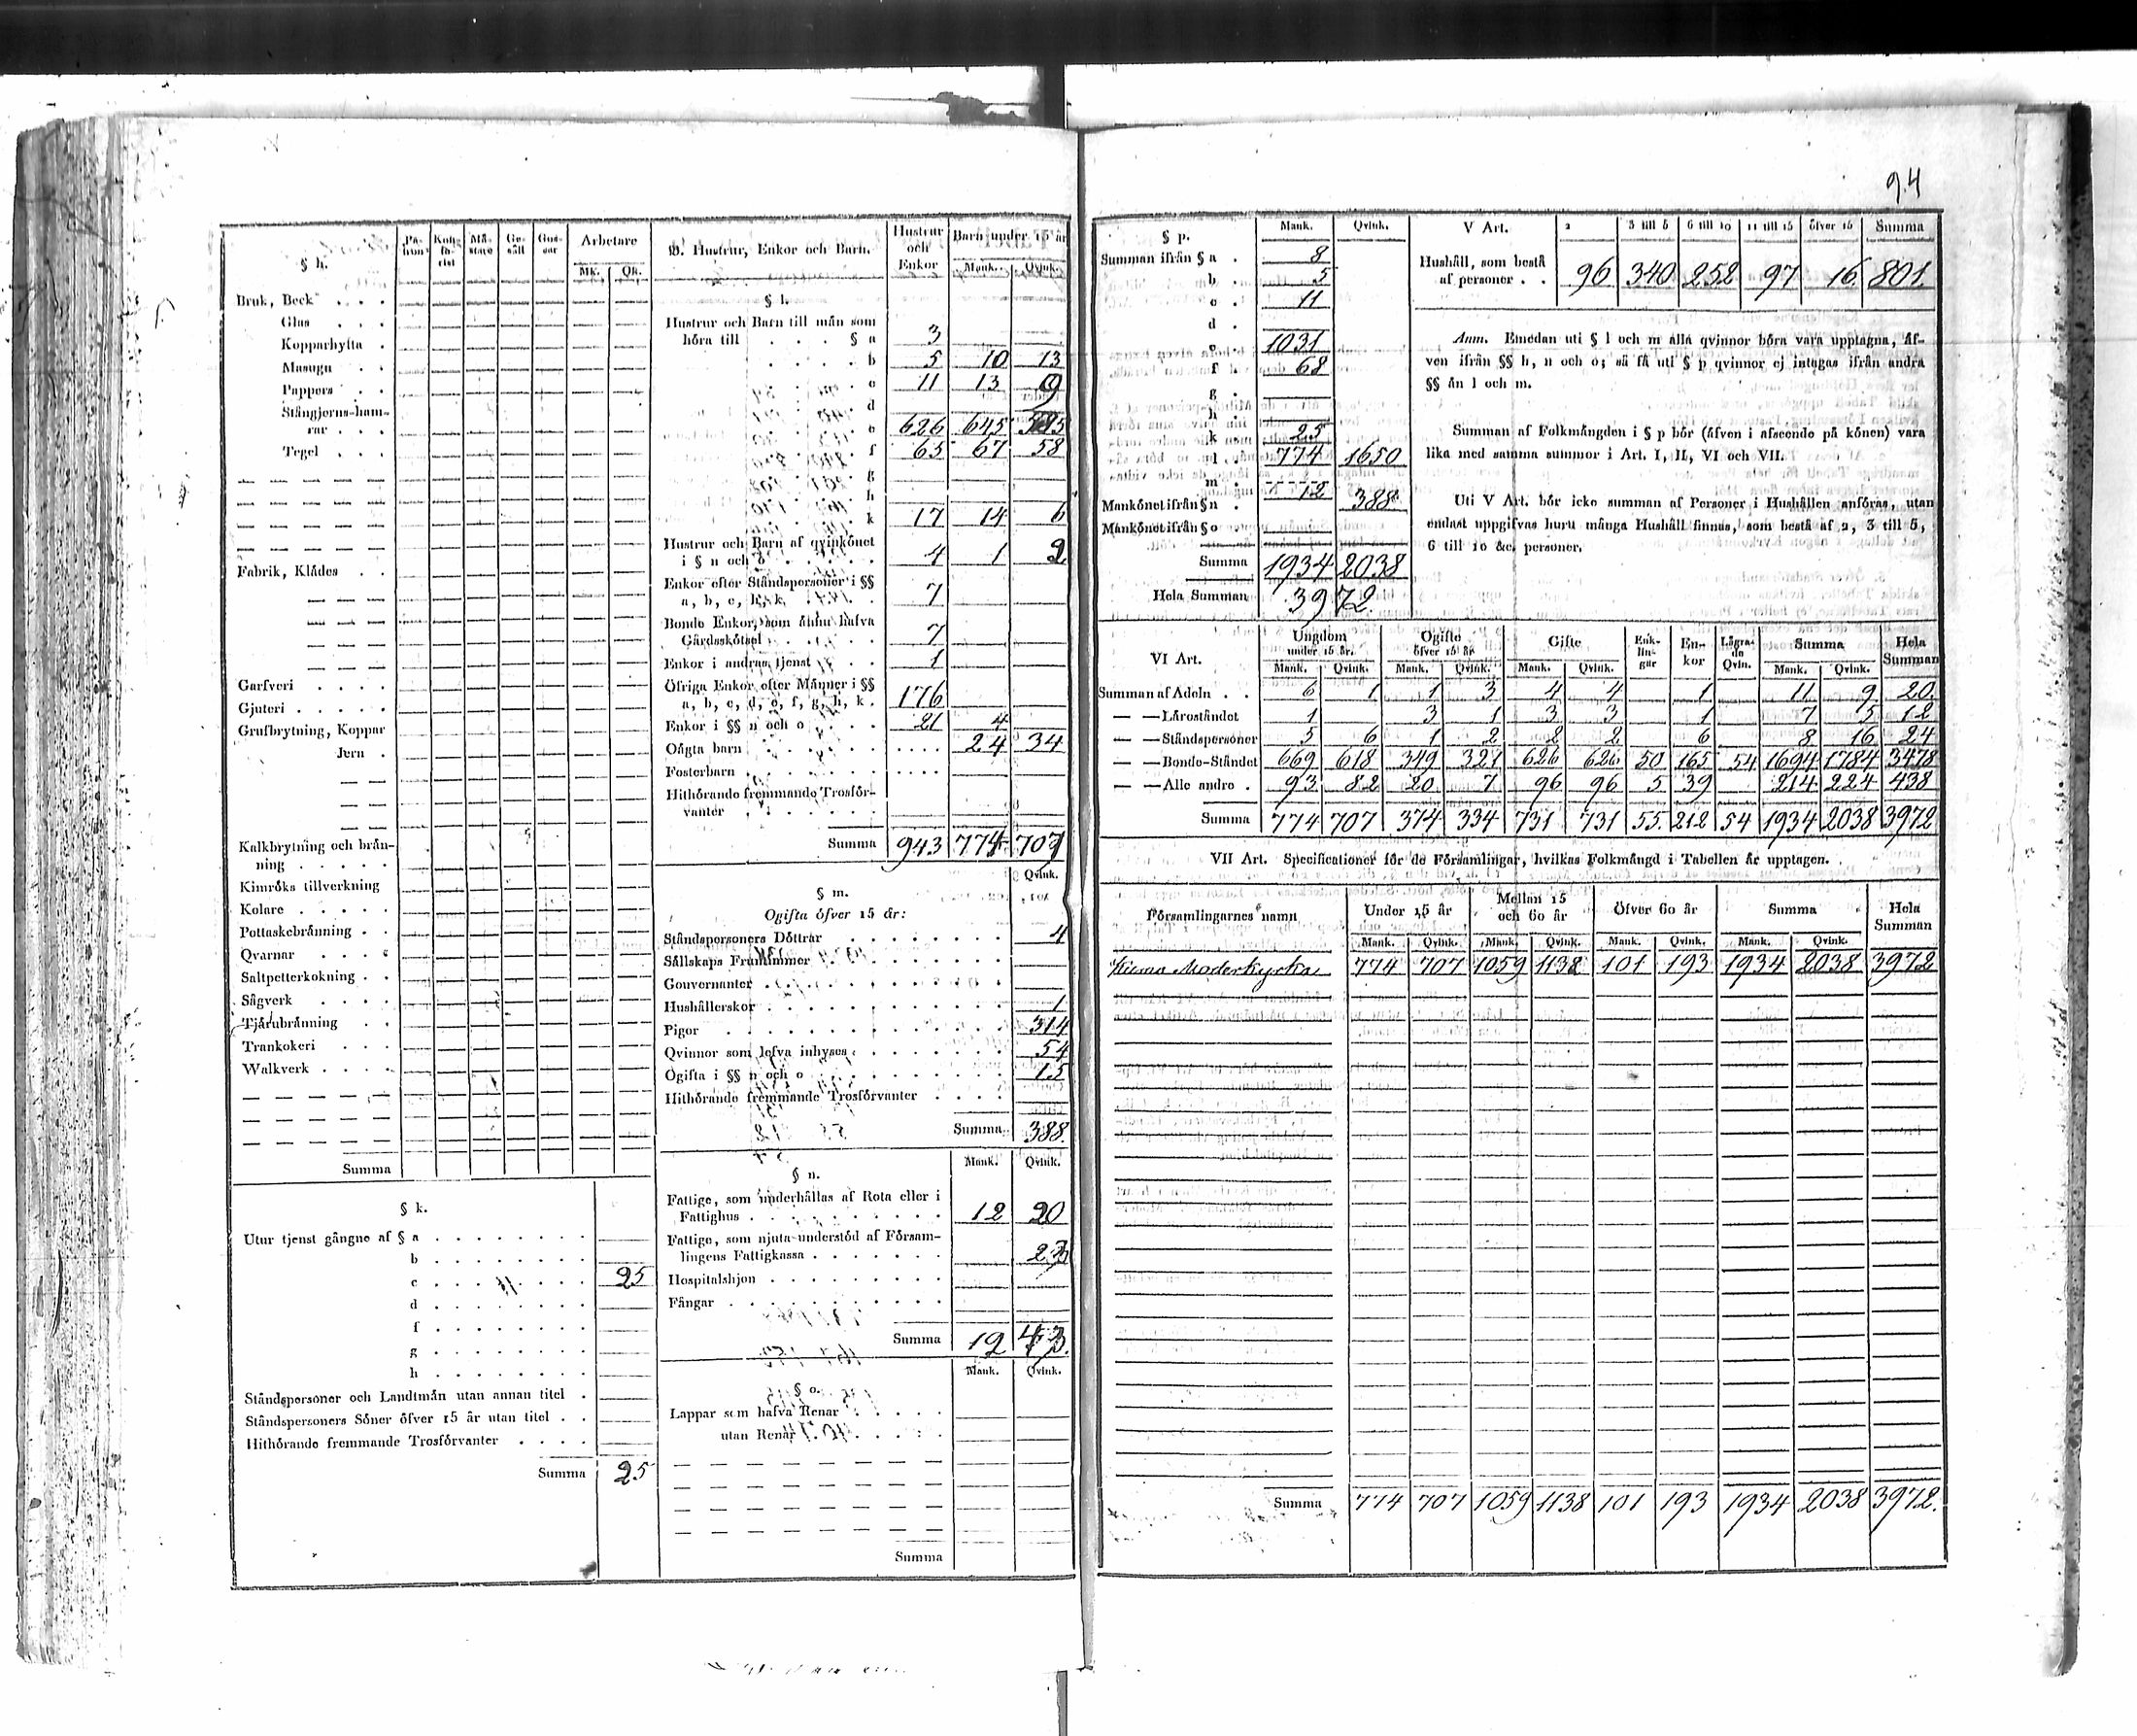 94
§ h.
Pa-
tron
Må-
stare
Ge-
säll
Gos-
sar
Arbetare
Mk. Qk.
Bruk, Beck . . .
Glas . . .
Kopparhytta .
Masugn . .
Pappers . .
Stångjerns-ham-
rar . . .
Tegel . . .
Fabrik, Klådes . .
Garfveri . . . .
Gjuteri . . . . .
Grufbrytning, Koppar
Jern .
Kalkbrytning och brån-
ning . . . . .
Kimröks tillverkning
Kolare . . . . .
Pottaskebrånning . .
Qvarnar . . . .
Saltpetterkokning . .
Sågverk . . . .
Tjårubrånning . .
Trankokeri . . .
Walkverk . . . .
Summa
§ k.
Utur tjenst gångne af § a . . . . . . . .
b . . . . . . . .
c . . . . . . . . 25
d . . . . . . . .
f . . . . . . . .
g . . . . . . . .
h . . . . . . . .
Ståndspersoner och Landtmån utan annan titel .
Ståndspersoners Söner öfver 15 år utan titel . .
Hithörande fremmande Trosförvanter . . . .
Summa 25
B. Hustrur, Enkor och Barn.
Hustrur
och
Enkor
Barn under 15 år
Mank. Qvink.
§ l.
Hustrur och Barn till mån som
höra till . . . § a 3
b 5 10 13
c 11 13 9
d
e 626 645
f 65 67 58
g
h
k 17 14 6
Hustrur och Barn af qvinkönet
i § n och o . . . . . 4 1 2
Enkor efter Ståndspersoner i §§
a, b, c, h, k, . . . . 7
Bonde Enkor, som ånnu hafva
Gårdsskötsel . . . . . 7
Enkor i andras tjenst . . . 1
Öfriga Enkor efter Månner i §§
a, b, c, d, e, f, g, h, k . 176
Enkor i §§ n och o . . . 21 4
Oågta barn . . . . . . . . . . . 24 34
Fosterbarn . . . . . . . . . . .
Hithörande fremmande Trosför-
vanter . . . . . . .
Summa 943 774 707
§ m.
Qvink.
Ogifta öfver 15 år:
Ståndspersoners Döttrar . . . . . . . 4
Sållskaps Fruntimmer . . . . . . . .
Gouvernanter . . . . . . . . . . .
Hushållerskor . . . . . . . . . . . 1
Pigor . . . . . . . . . . . . . 314
Qvinnor som lefva inhyses . . . . . . . 54
Ogifta i §§ n och o . . . . . . . . . 15
Hithörande fremmande Trosförvanter . . . .
Summa 388.
Mank. Qvink.
§ n.
Fattige, som underhållas af Rota eller i
Fattighus . . . . . . . . . . 12 20
Fattige, som njuta understöd af Försam-
lingens Fattigkassa . . . . . . . 23
Hospitalshjon . . . . . . . . .
Fångar . . . . . . . . . . .
Summa 12 43.
Mank. Qvink.
§ o.
Lappar som hafva Renar . . . . .
utan Renar . . . . . .
Summa
§ p. Mank. Qvink.
Summan ifrån § a . 8
b . 5
c . 11
d .
e . 1031
f . 68
g .
h .
k . 25
l . 774 1650
m .
Mankönet ifrån § n . 12 388
Mankönet ifrån § o .
Summa 1934 2038
Hela Summan 3972.
V Art. 2 3 till 5 6 till 10 11 till 15 öfver 15 Summa
Hushåll, som bestå
af personer . . 96 340 252 97 16. 801.
Anm. Emedan uti § l och m alla qvinnor böra vara upptagna, åf-
ven ifrån §§ h, n och o; så få uti § p qvinnor ej intagas ifrån andra
§§ ån l och m.
Summan af Folkmångden i § p bör (åfven i afseende på könen) vara
lika med samma summor i Art. I, II, VI och VII.
Uti V Art. bör icke summan af Personer i Hushållen anföras, utan
endast uppgifvas huru många Hushåll finnas, som bestå af 2, 3 till 5,
6 till 10 &c. personer.
VI Art.
Ungdom
under 15 år.
Ogifte
öfver 15 år
Gifte
Enk-
lin-
gar
En-
kor
Lågra-
de
Qvin.
Summa
Hela
Summan
Mank. Qvink. Mank. Qvink. Mank. Qvink. Mank. Qvink.
Summan af Adeln . . 6 1 1 3 4 4 1 11 9 20.
— — Låroståndet 1 3 1 3 3 1 7 5 12
— — Ståndspersoner 5 6 1 2 2 2 6 8 16 24
— — Bonde-Ståndet 669 618 349 321 626 626 50 165 54 1694 1784 3478
— — Alle andre . 93 82 20 7 96 96 5 39 214 224 438
Summa 774 707 374 334 731 731 55. 212 54 1934 2038 3972
VII Art. Specificationer för de Församlingar, hvilkas Folkmångd i Tabellen år upptagen.
Församlingarnes namn
Under 15 år
Mellan 15
och 60 år
Öfver 60 år
Summa
Hela
Summan
Mank. Qvink. Mank. Qvink. Mank. Qvink. Mank. Qvink.
Moderkyrka 774 707 1059 1138 101 193 1934 2038 3972
Summa 774 707 1059 1138 101 193 1934 2038 3972.